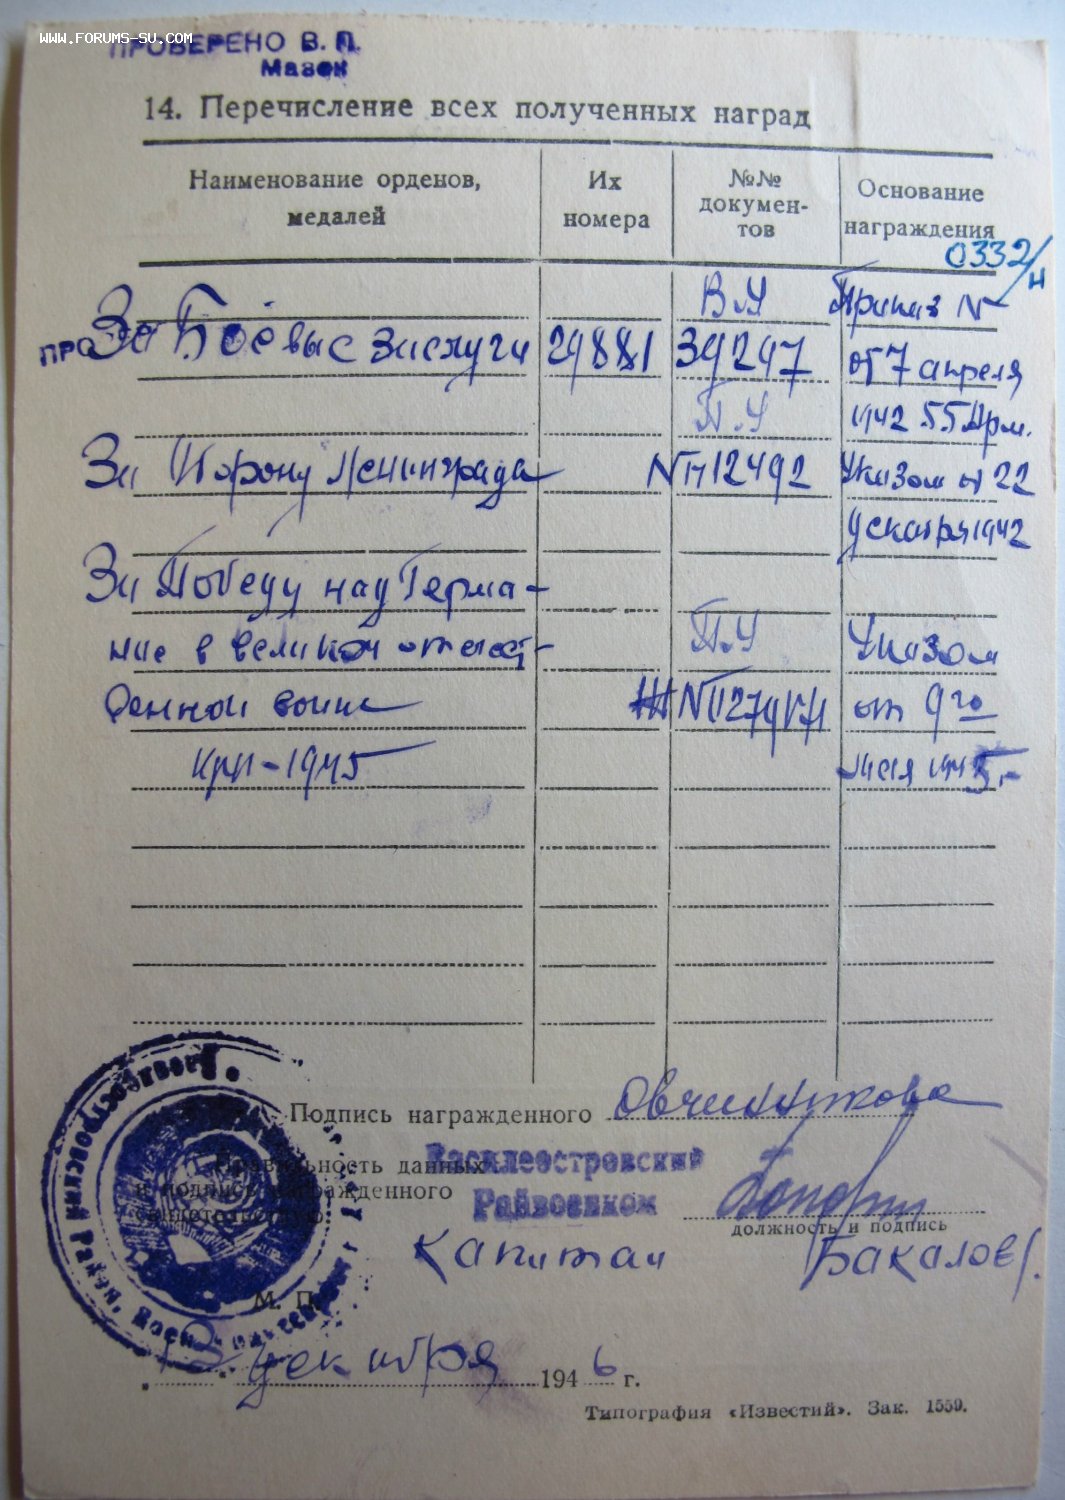 www.forums-su.com
ПРОВЕРЕНО В. П.
Мазок
14. Перечисление всех полученных наград
Наименование орденов, медалей
Их номера
№№ докумен-тов
Основание награждения
0332/н
В.У Приказ №
За Боевые Заслуги 29881 39297 от 7 апреля
П.У 1942 55 Арм.
За Оборону Ленинграда № 12492 Указом от 22
декабря 1942
За Победу над Герма-
ние в великой отечест- П.У Указом
венной воине от 9го
1945 мая 1945 г
Подпись награжденного Овчинникова
Правильность данных
и подпись награжденного
Василеостровский
Райвоенком
должность и подпись
капитан Бакалов
М. П.
декабря 1946 г.
Типография «Известий». Зак. 1559.